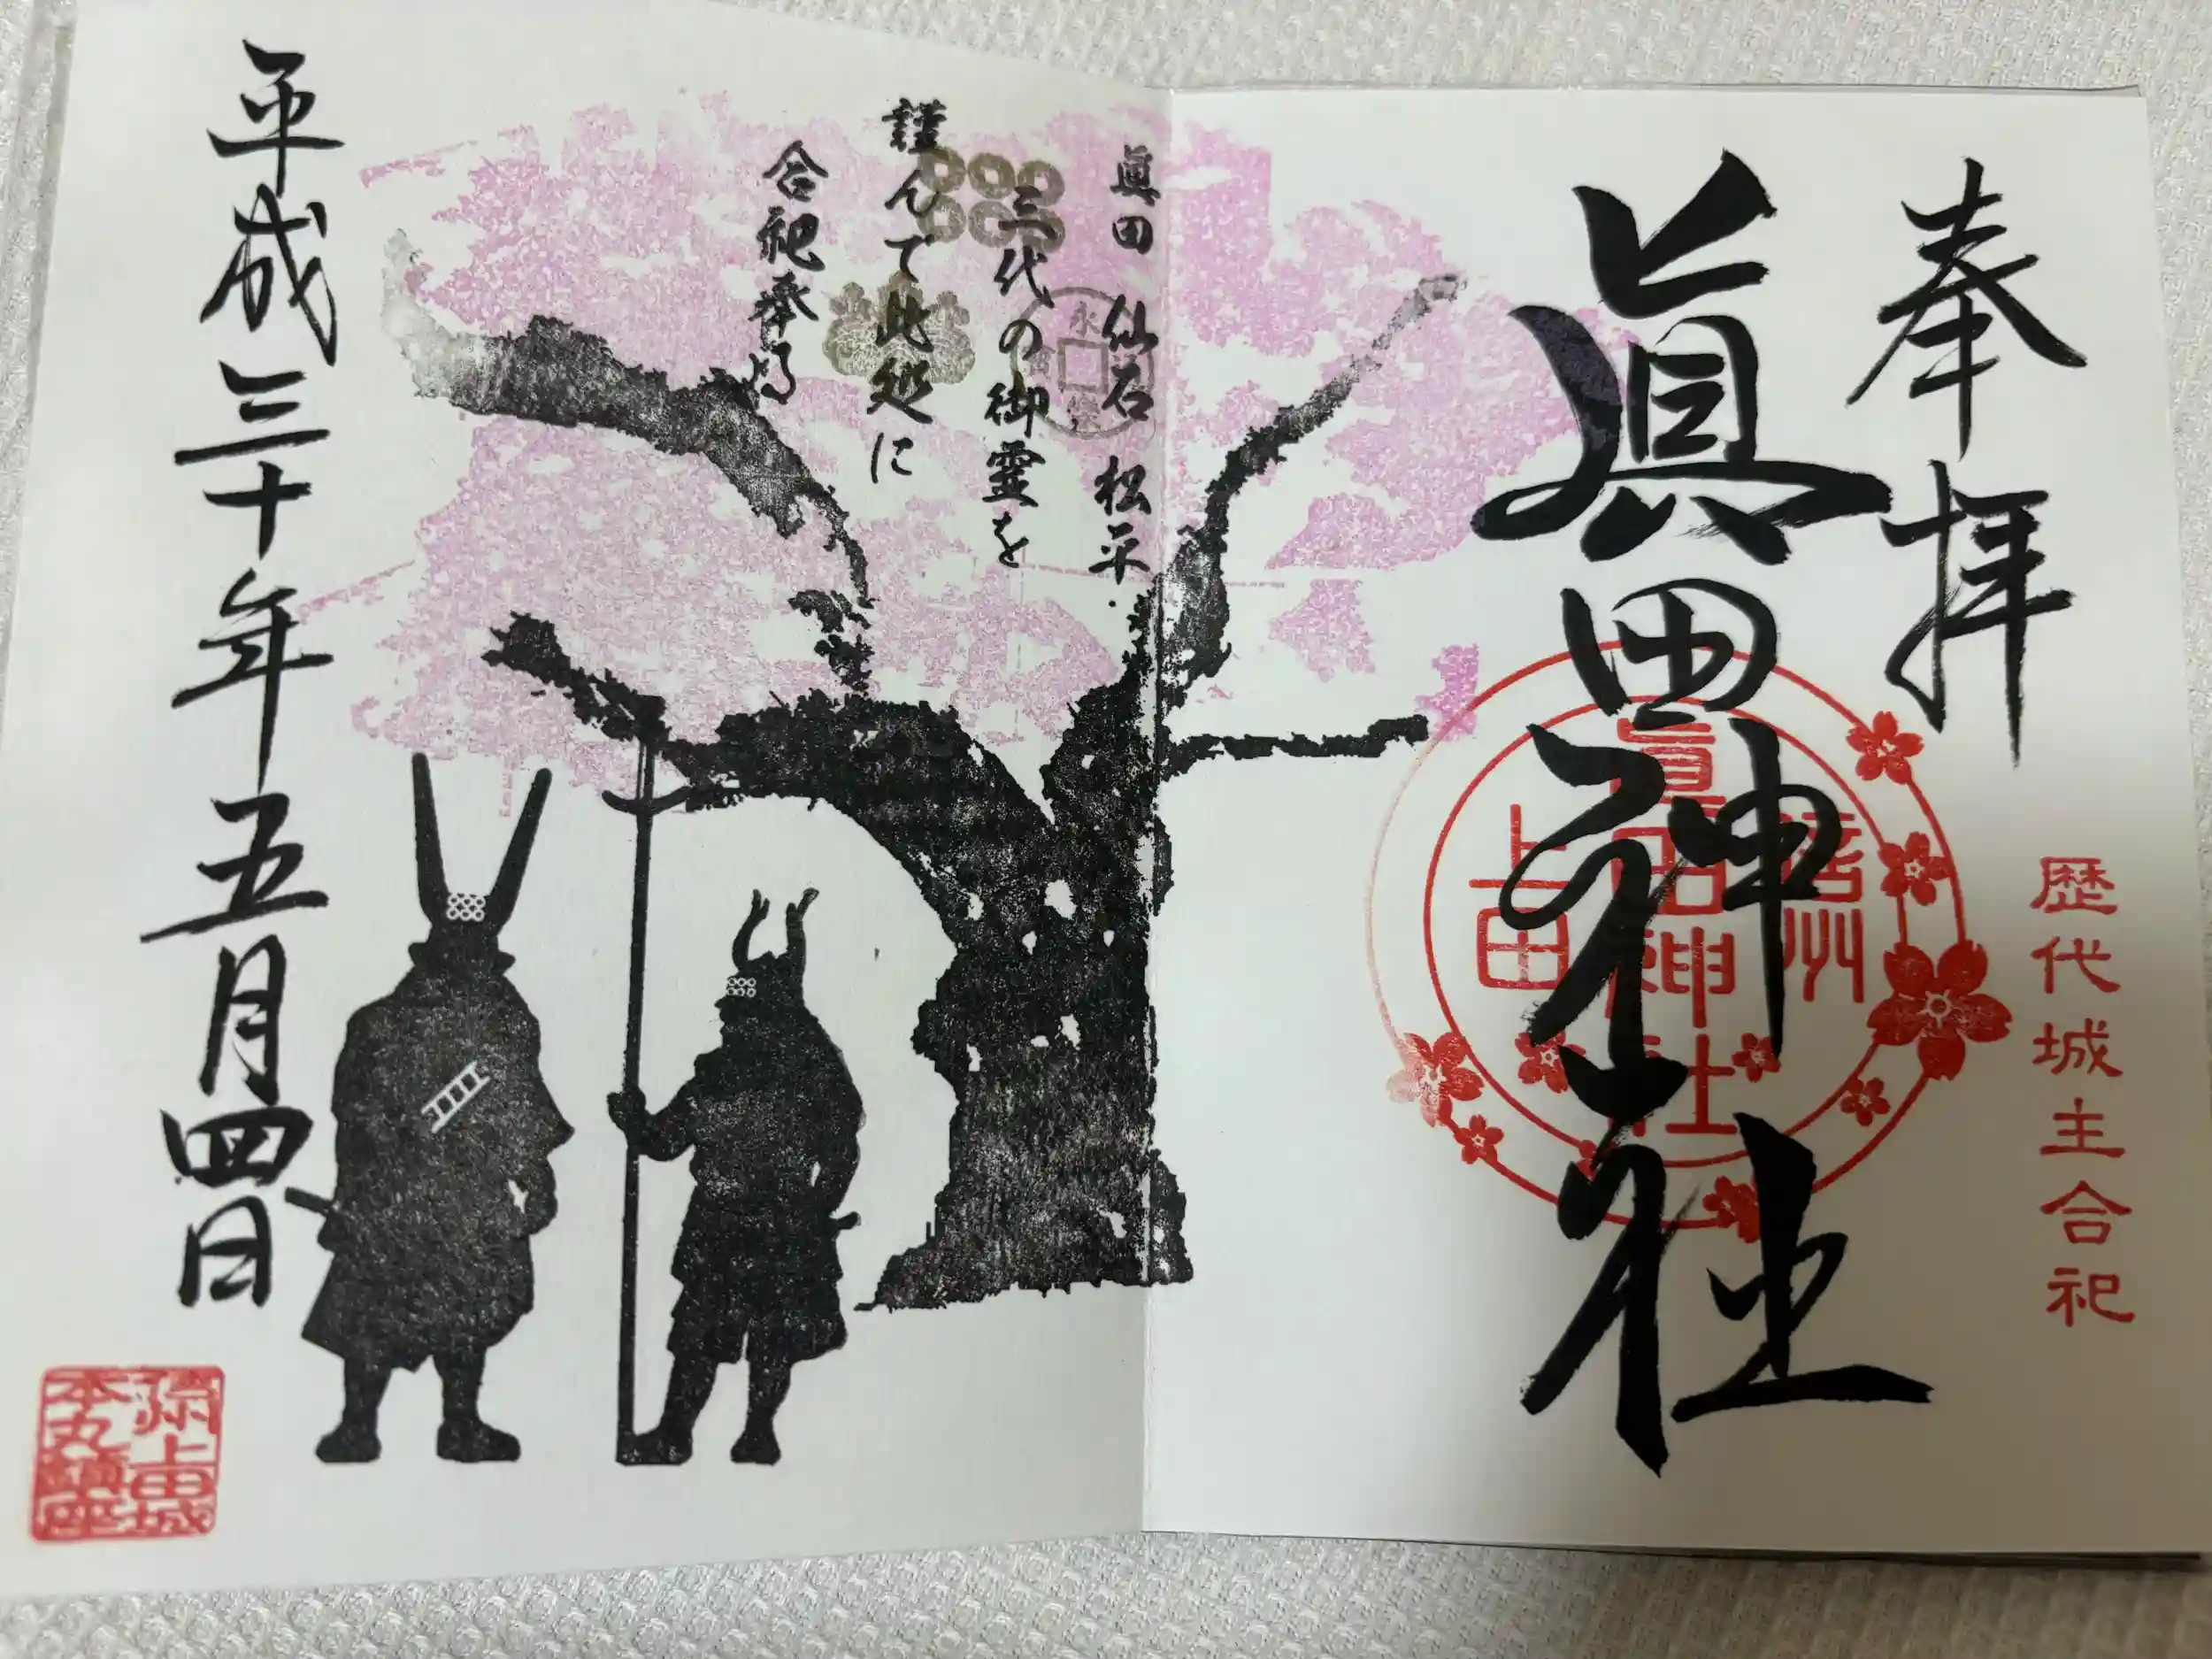 奉拝
歴代城主合祀
眞田神社
信州
眞田神社
上田
眞田 仙石 松平
三代の御霊を
謹んで此処に
合祀奉る
永
平成三十年五月四日